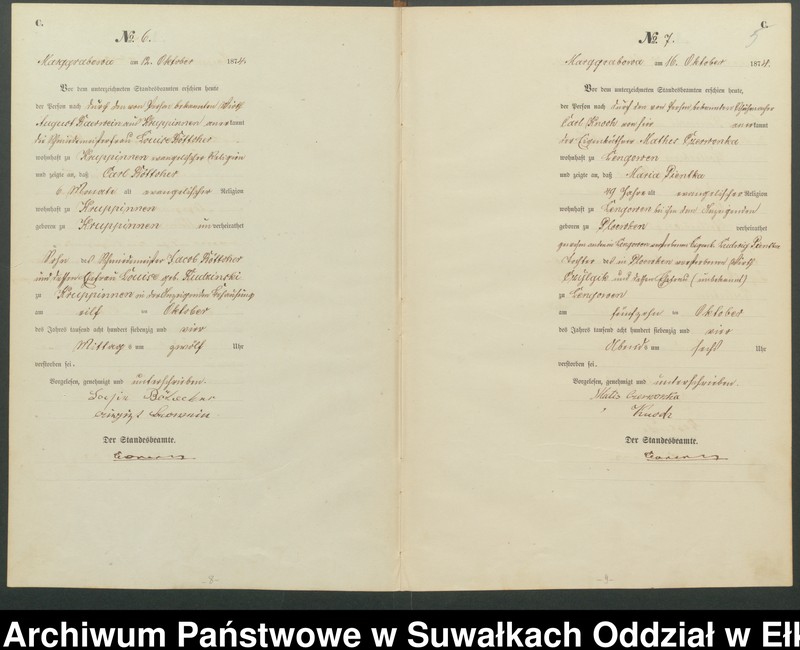 C.
№ 6.
Marggrabowa am 12. Oktober 1874.
Vor dem unterzeichneten Standesbeamten erschien heute,
der Person nach durch den von Person bekannten Wirth
August aus Kruppinnen anerkannt
die Schmiedemeisterfrau Louise Böttcher
wohnhaft zu Kruppinnen evangelischer Religion
und zeigte an, daß Carl Böttcher
6 Monate alt evangelischer Religion
wohnhaft zu Kruppinnen
geboren zu Kruppinnen unverheirathet
Sohn des Schmiedemeister Jacob Böttcher
und dessen Ehefrau Louise geb. Rudzinski
zu Kruppinnen in der Anzeigenden Behausung
am eilf ten Oktober
des Jahres tausend acht hundert siebenzig und vier
Mittags um zwölf Uhr
verstorben sei.
Vorgelesen, genehmigt und unterschrieben.
Der Standesbeamte.
-8-
C.
5
№ 7.
Marggrabowa am 16. Oktober 1874.
Vor dem unterzeichneten Standesbeamten erschien heute,
der Person nach durch den von Person bekannten
Carl von hier anerkannt
der Eigenkäthner Mathes Czerwonka
wohnhaft zu Lengowen
und zeigte an, daß Maria Pientka
49 Jahre alt evangelischer Religion
wohnhaft zu Lengowen bei ihm dem Anzeigenden
geboren zu verheirathet
gewesen an den in Lengowen verstorbenen Ludwig Pientka
Tochter des in verstorbenen Wirth
und dessen Ehefrau (unbekannt)
zu Lengowen
am fünfzehn ten Oktober
des Jahres tausend acht hundert siebenzig und vier
Abends um sechs Uhr
verstorben sei.
Vorgelesen, genehmigt und unterschrieben.
Matis Czerwonka
Der Standesbeamte.
-9-
Archiwum Państwowe w Suwałkach Oddział w Ełk